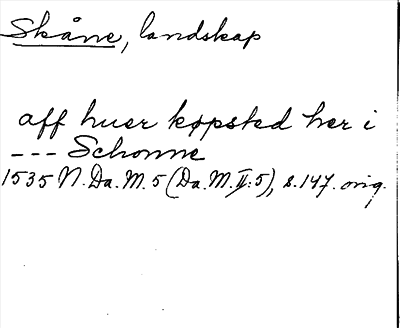 Skåne, landskap
aff huer køpsted her i
--- Schonne
1535 N.Da.M. 5 (Da.M. II:5), s. 147. orig.